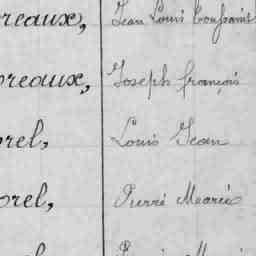 reaux, Jean Louis Toussaint
reaux, Joseph françois
rel, Louis Jean
orel, Pierre Marie